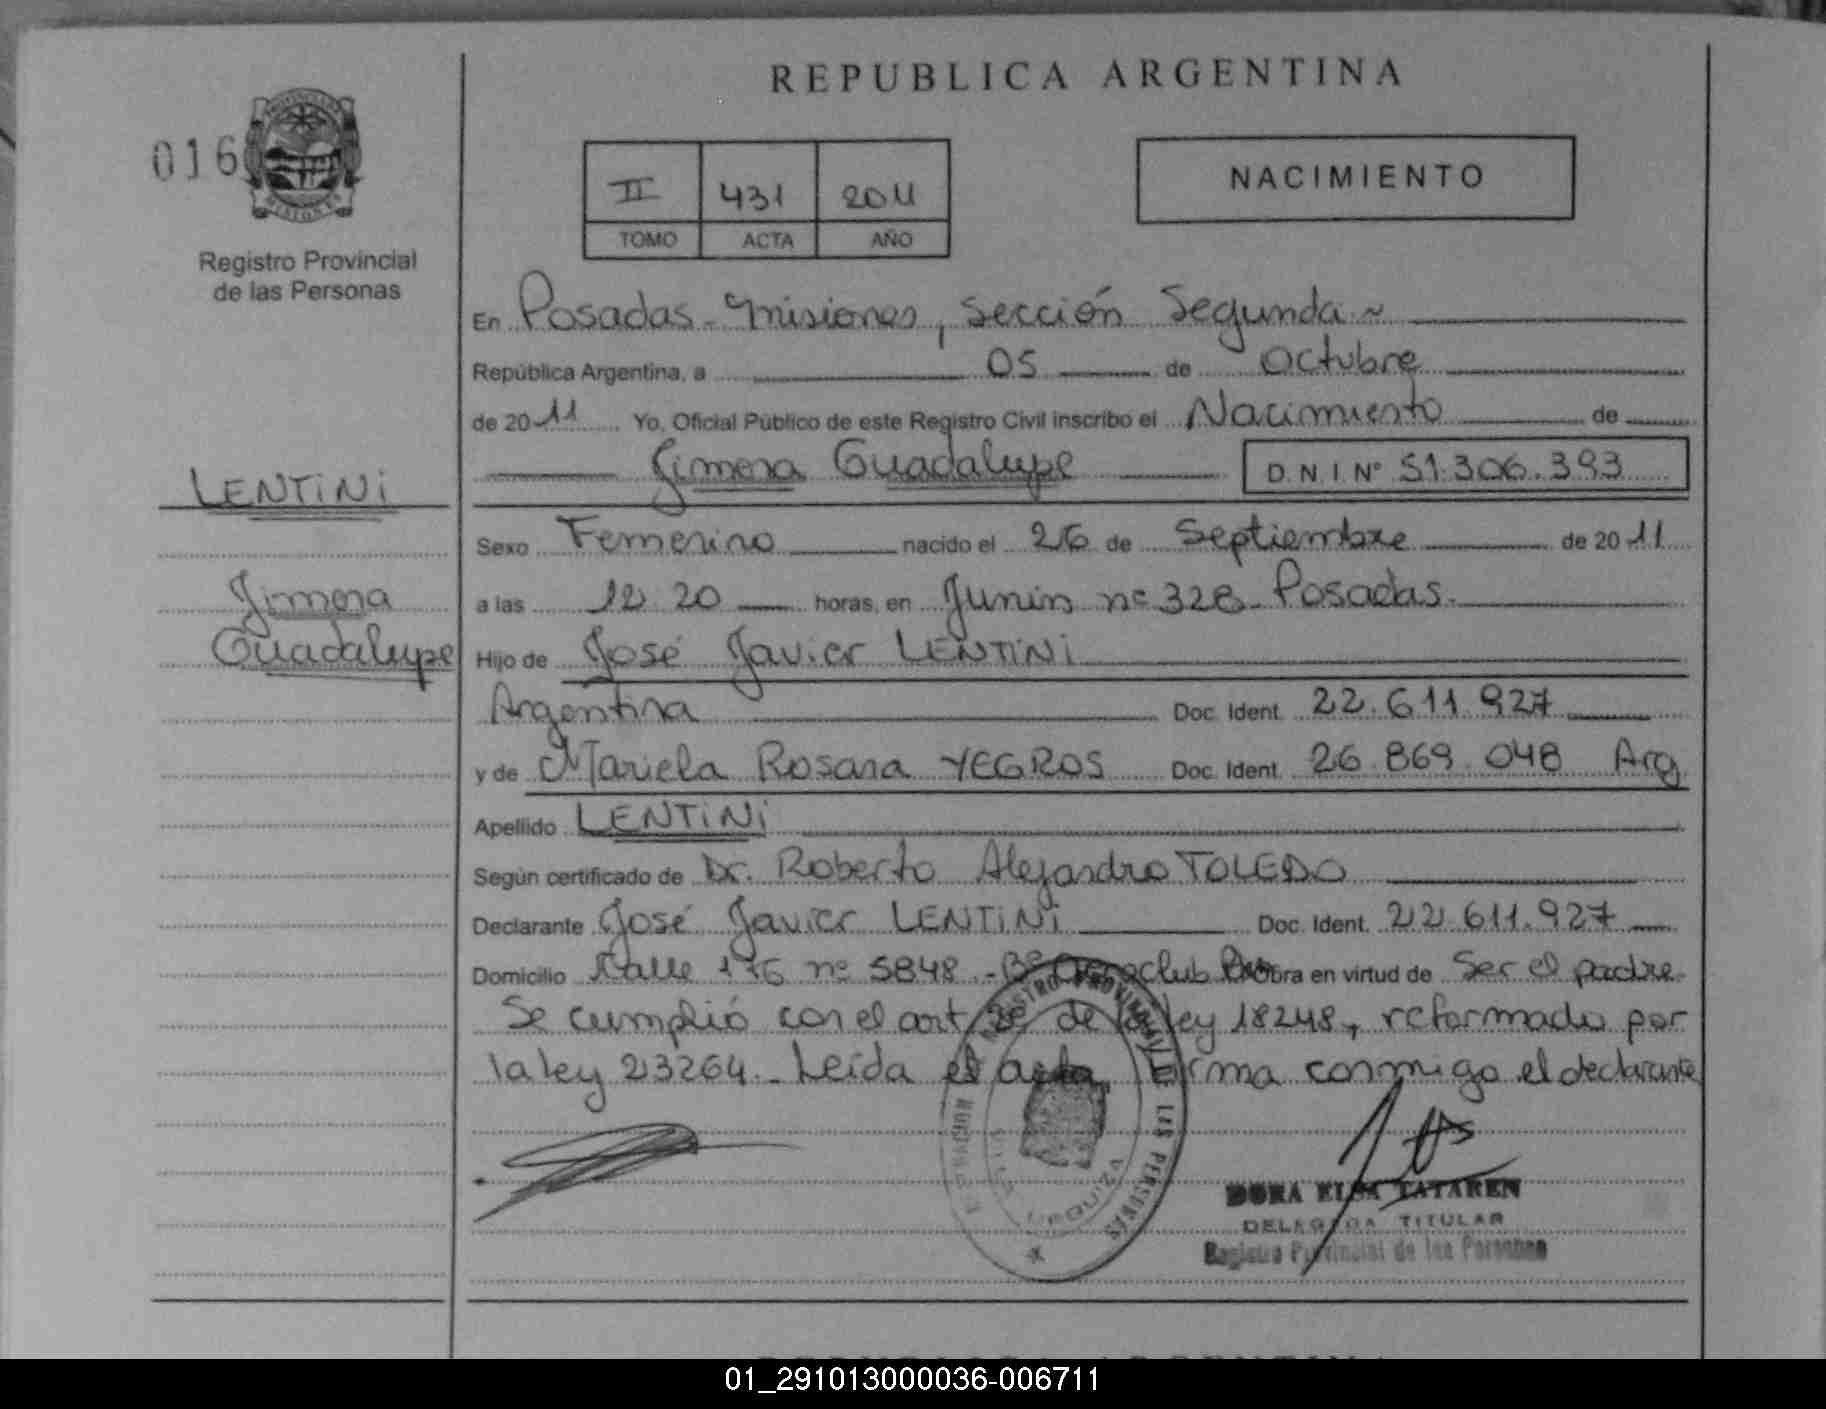 REPUBLICA ARGENTINA
016
PROVINCIA
MISIONES
Registro Provincial
de las Personas
II 431 2011
TOMO ACTA AÑO
NACIMIENTO
En Posadas - Misiones, Sección Segunda ~
República Argentina, a 05 de Octubre
de 2011 Yo, Oficial Público de este Registro Civil inscribo el Nacimiento de
Jimena Guadalupe D.N.I Nº 51.306.393
LENTINI
Sexo Femenino nacido el 26 de Septiembre de 2011
Jimena
a las 12.20 horas, en Junín nº 328 - Posadas.
Guadalupe
Hijo de José Javier LENTINI
Argentina Doc. Ident. 22.611.927
y de Mariela Rosana YEGROS Doc. Ident. 26.869.048 Arg
Apellido LENTINI
Según certificado de Dr. Roberto Alejandro TOLEDO
Declarante José Javier LENTINI Doc. Ident. 22.611.927
Domicilio Calle 176 nº 5848 - Bº Aeroclub Obra en virtud de Ser el padre
Se cumplió con el art 2º de la ley 18248, reformado por
la ley 23264. - Leída el acta, firma conmigo el declarante
REGISTRO PROVINCIAL DE LAS PERSONAS
VILLA URQUIZA
DORA ELSA TATAREN
DELEGADA TITULAR
Registro Provincial de las Personas
01_291013000036-006711